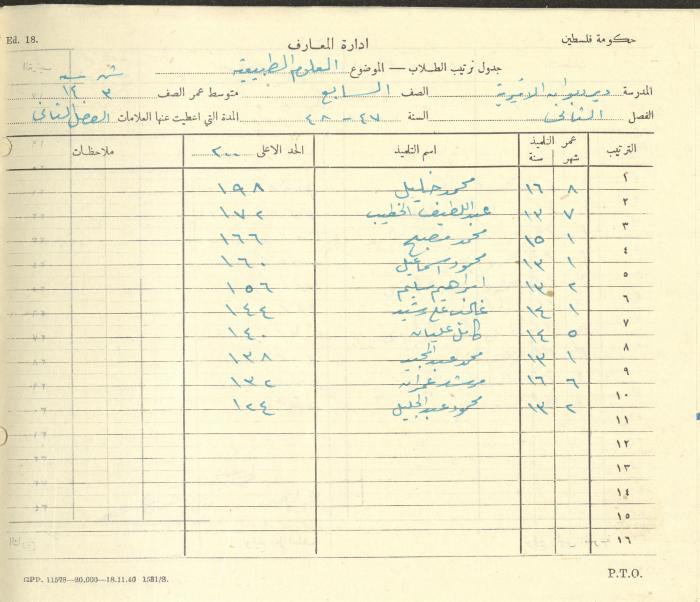 Ed. 18.
حكومة فلسطين
ادارة المعارف
جدول ترتيب الطلاب — الموضوع العلوم الطبيعية
شهر سنة
المدرسة ديرديوانه الاميرية الصف السابع متوسط عمر الصف ٣ ١٤
الفصل الثاني السنة ٤٧ - ٤٨ المدة التي اعطيت عنها العلامات الفصل الثاني
الترتيب عمر التلميذ شهر سنة اسم التلميذ الحد الاعلى ٢٠٠ ملاحظات
١ ٨ ١٦ محمد خليل ١٩٨
٢ ٧ ١٣ عبد اللطيف الخطيب ١٧٢
٣ ١ ١٥ محمد مصبح ١٦٦
٤ ١ ١٣ محمود اسماعيل ١٦٠
٥ ٢ ١٣ ابراهيم سليم ١٥٦
٦ ١ ١٤ علي رشيد ١٤٤
٧ ٥ ١٤ كامل عليان ١٤٠
٨ ١ ١٣ محمد عبد المجيد ١٣٨
٩ ٦ ١٦ مرشد عمران ١٣٢
١٠ ٢ ١٣ محمود عبد الجليل ١٢٤
١١
١٢
١٣
١٤
١٥
١٦
GPP. 11578—20,000—18.11.40 1531/S.
P.T.O.